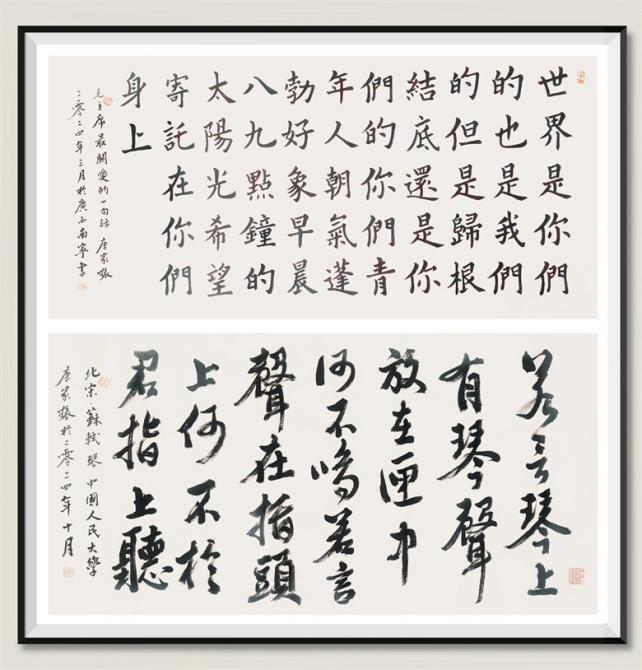 世界是你們
的也是我們
的但是歸根
結底還是你
們的你們青
年人朝氣蓬
勃好象早晨
八九點鐘的
太陽光希望
寄託在你們
身上
毛主席最關愛的一句話 唐家振
二零二四年三月於廣西南寧書
若言琴上
有琴聲
放在匣中
何不鳴若言
聲在指頭
上何不於
君指上聽
北宋蘇軾琴 中國人民大學
唐家振於二零二四年十月